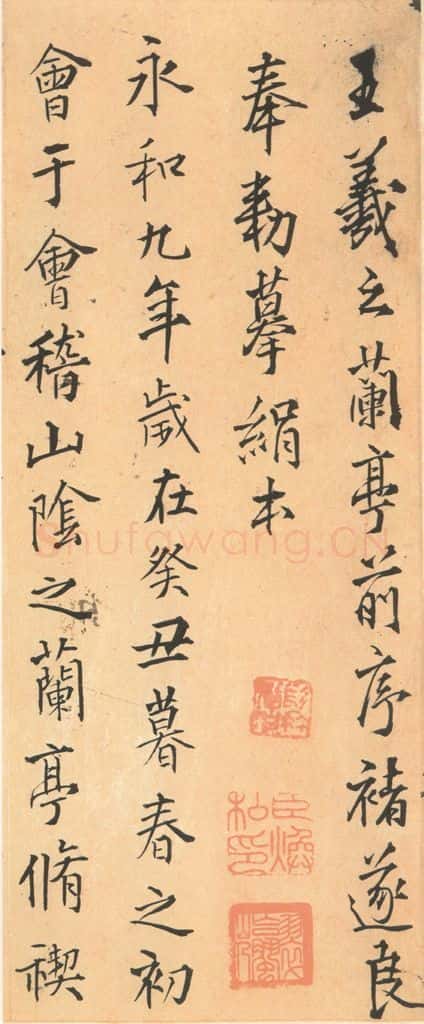 王羲之蘭亭前序褚遂良
奉勑摹絹本
永和九年歲在癸丑暮春之初
會于會稽山陰之蘭亭脩禊
shufawang.CN